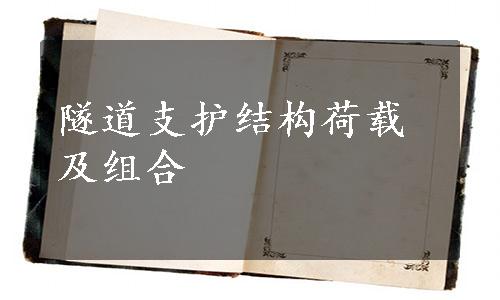 隧道支护结构荷载
及组合